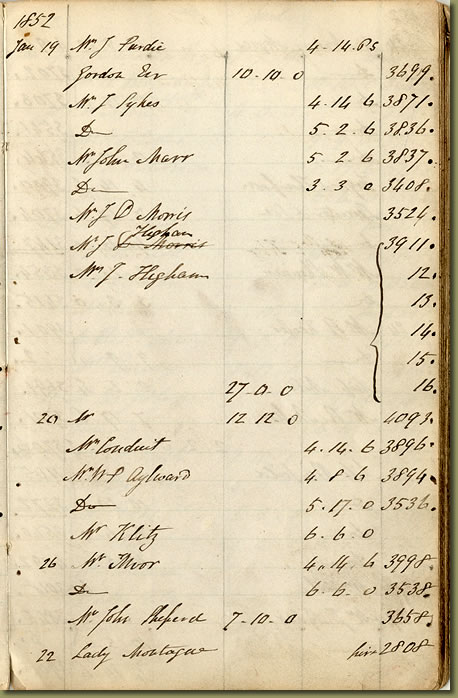 1852
Jan 19 Mr J Purdie 4-14.6s
Gordon Esr 10-10-0 3699.
Mr J Sykes 4.14 6 3871.
Do 5.2.6 3836.
Mr John Marr 5 2 6 3837.
Do 3.3 0 3408.
Mr J D Morris 3524.
Higham
Mr J D Morris 3911.
Mr J. Higham 12.
13.
14.
15.
27-0-0 16.
20 Mr 12 12 0 4093.
Mr Conduit 4.14.6 3896.
Mr W P Aylward 4.8 6 3894.
Do 5.17.0 3536.
Mr Klitz 6.6.0
26 Mr Moor 4.14 6 3998.
Do 6.6 0 3538.
Mr John Sheperd 7-10-0 3658.
22 Lady Montague hire 2808